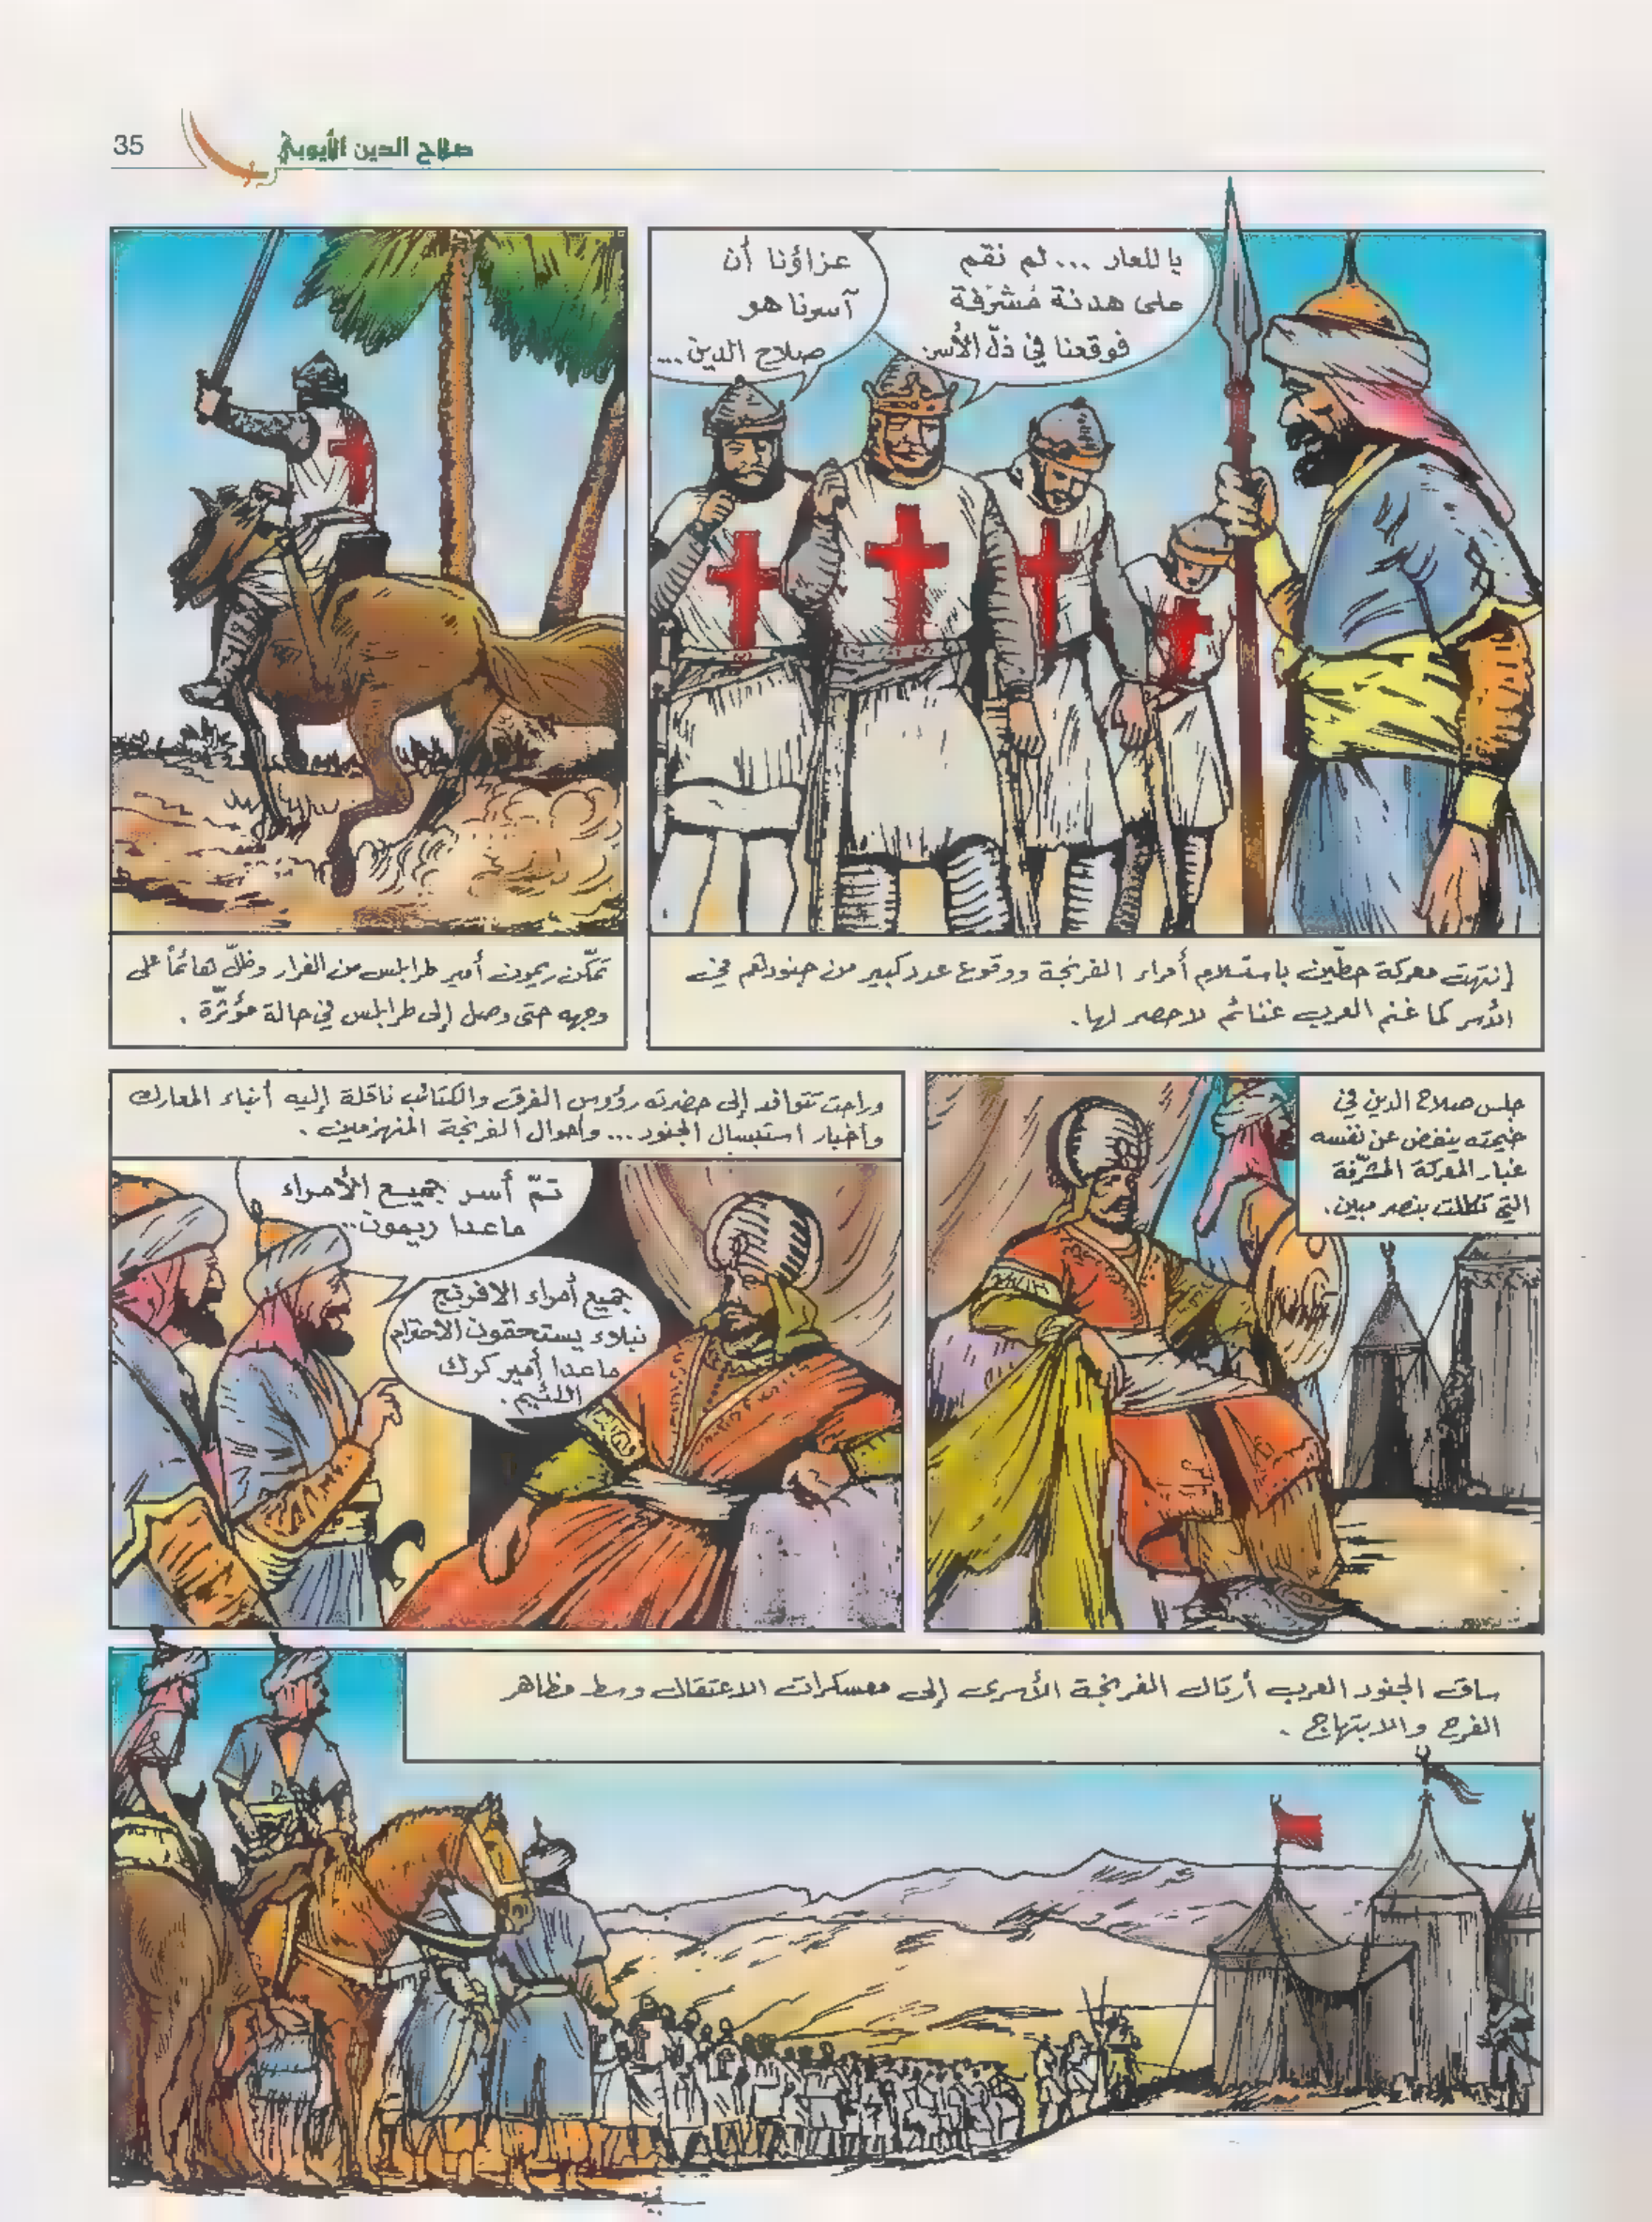 35
صلاح الدين الأيوبي
ياللعار ... لم نقم
على هدنة مُشرّفة
فوقعنا في ذلّ الأسر.
عزاؤنا أن
آسرنا هو
صلاح الدين...
إنتهت معركة حطّين باستسلام أمراء الفرنجة ووقوع عدد كبير من جنودهم في
الأسر كما غنم العرب غنائم لا حصر لها.
تمكّن ريمون أمير طرابلس من الفرار وظلّ هائماً على
وجهه حتى وصل إلى طرابلس في حالة مؤثّرة.
جلس صلاح الدين في
خيمته ينفض عن نفسه
غبار المعركة المشرّفة
التي تكللت بنصر مبين.
وراحت تتوافد إلى حضرته رؤوس الفرق والكتائب ناقلة إليه أنباء المعارك
وأخبار استبسال الجنود... وأحوال الفرنجة المنهزمين.
تمّ أسر جميع الأمراء
ماعدا ريمون...
جميع أمراء الافرنج
نبلاء يستحقون الاحترام
ماعدا أمير كرك
اللئيم.
ساق الجنود العرب أرتال الفرنجة الأسرى إلى معسكرات الاعتقال وسط مظاهر
الفرح والابتهاج.